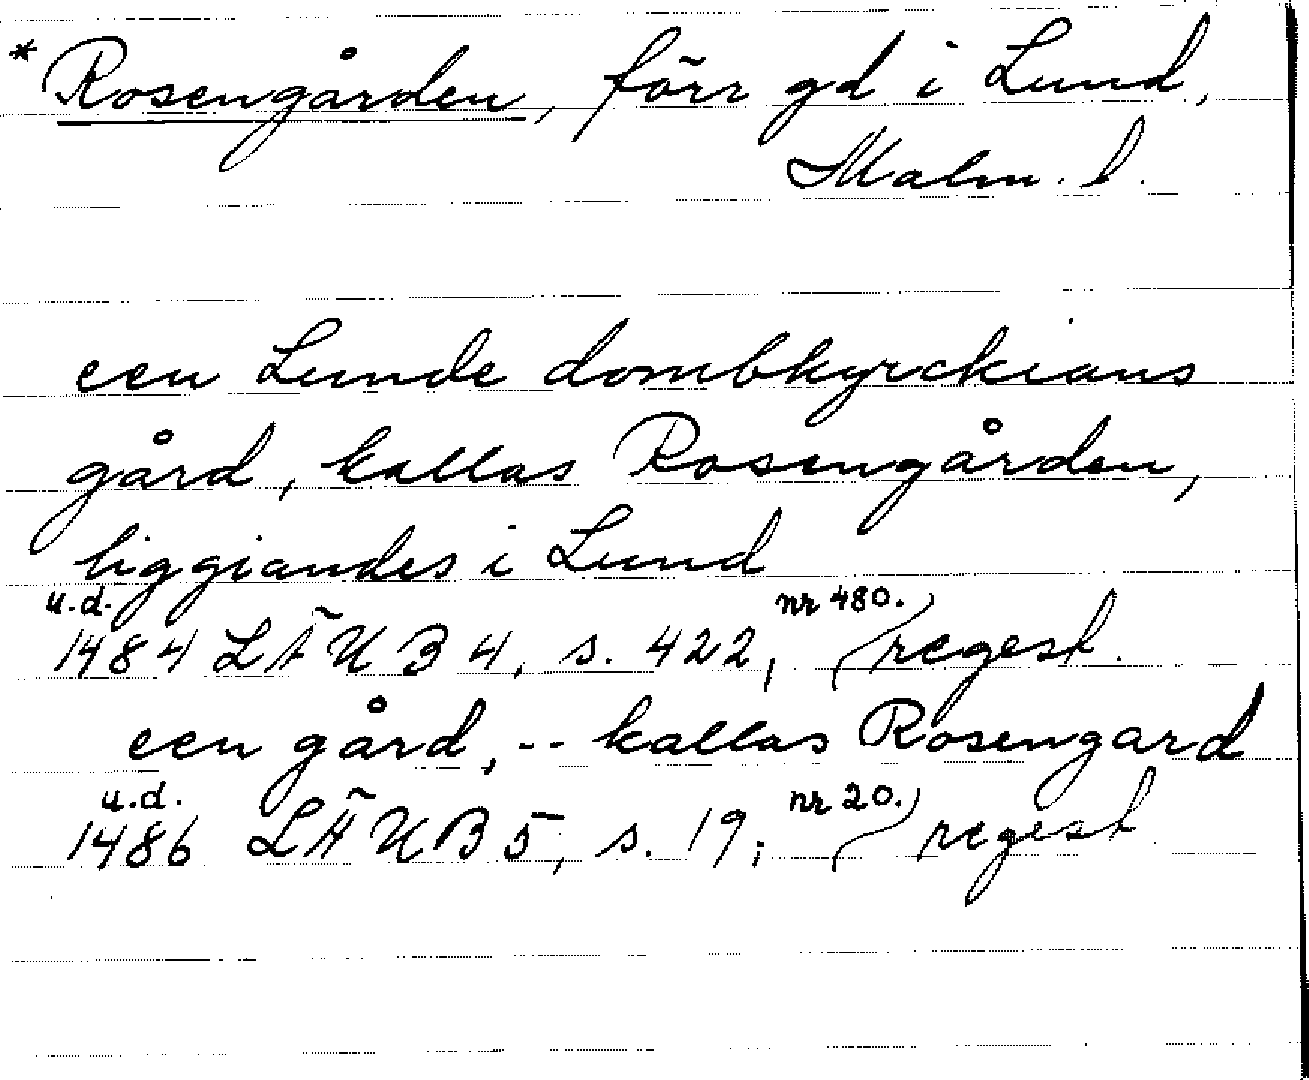 * Rosengården, förr gd i Lund,
Malm. l.
een Lunde dombkyrckians
gård, kallas Rosengården,
liggiandes i Lund
u.d. nr 480.
1484 LÄUB 4, s. 422, regest.
een gård, -- kallas Rosengard
u.d. nr 20.
1486 LÄUB 5, s. 19; regest